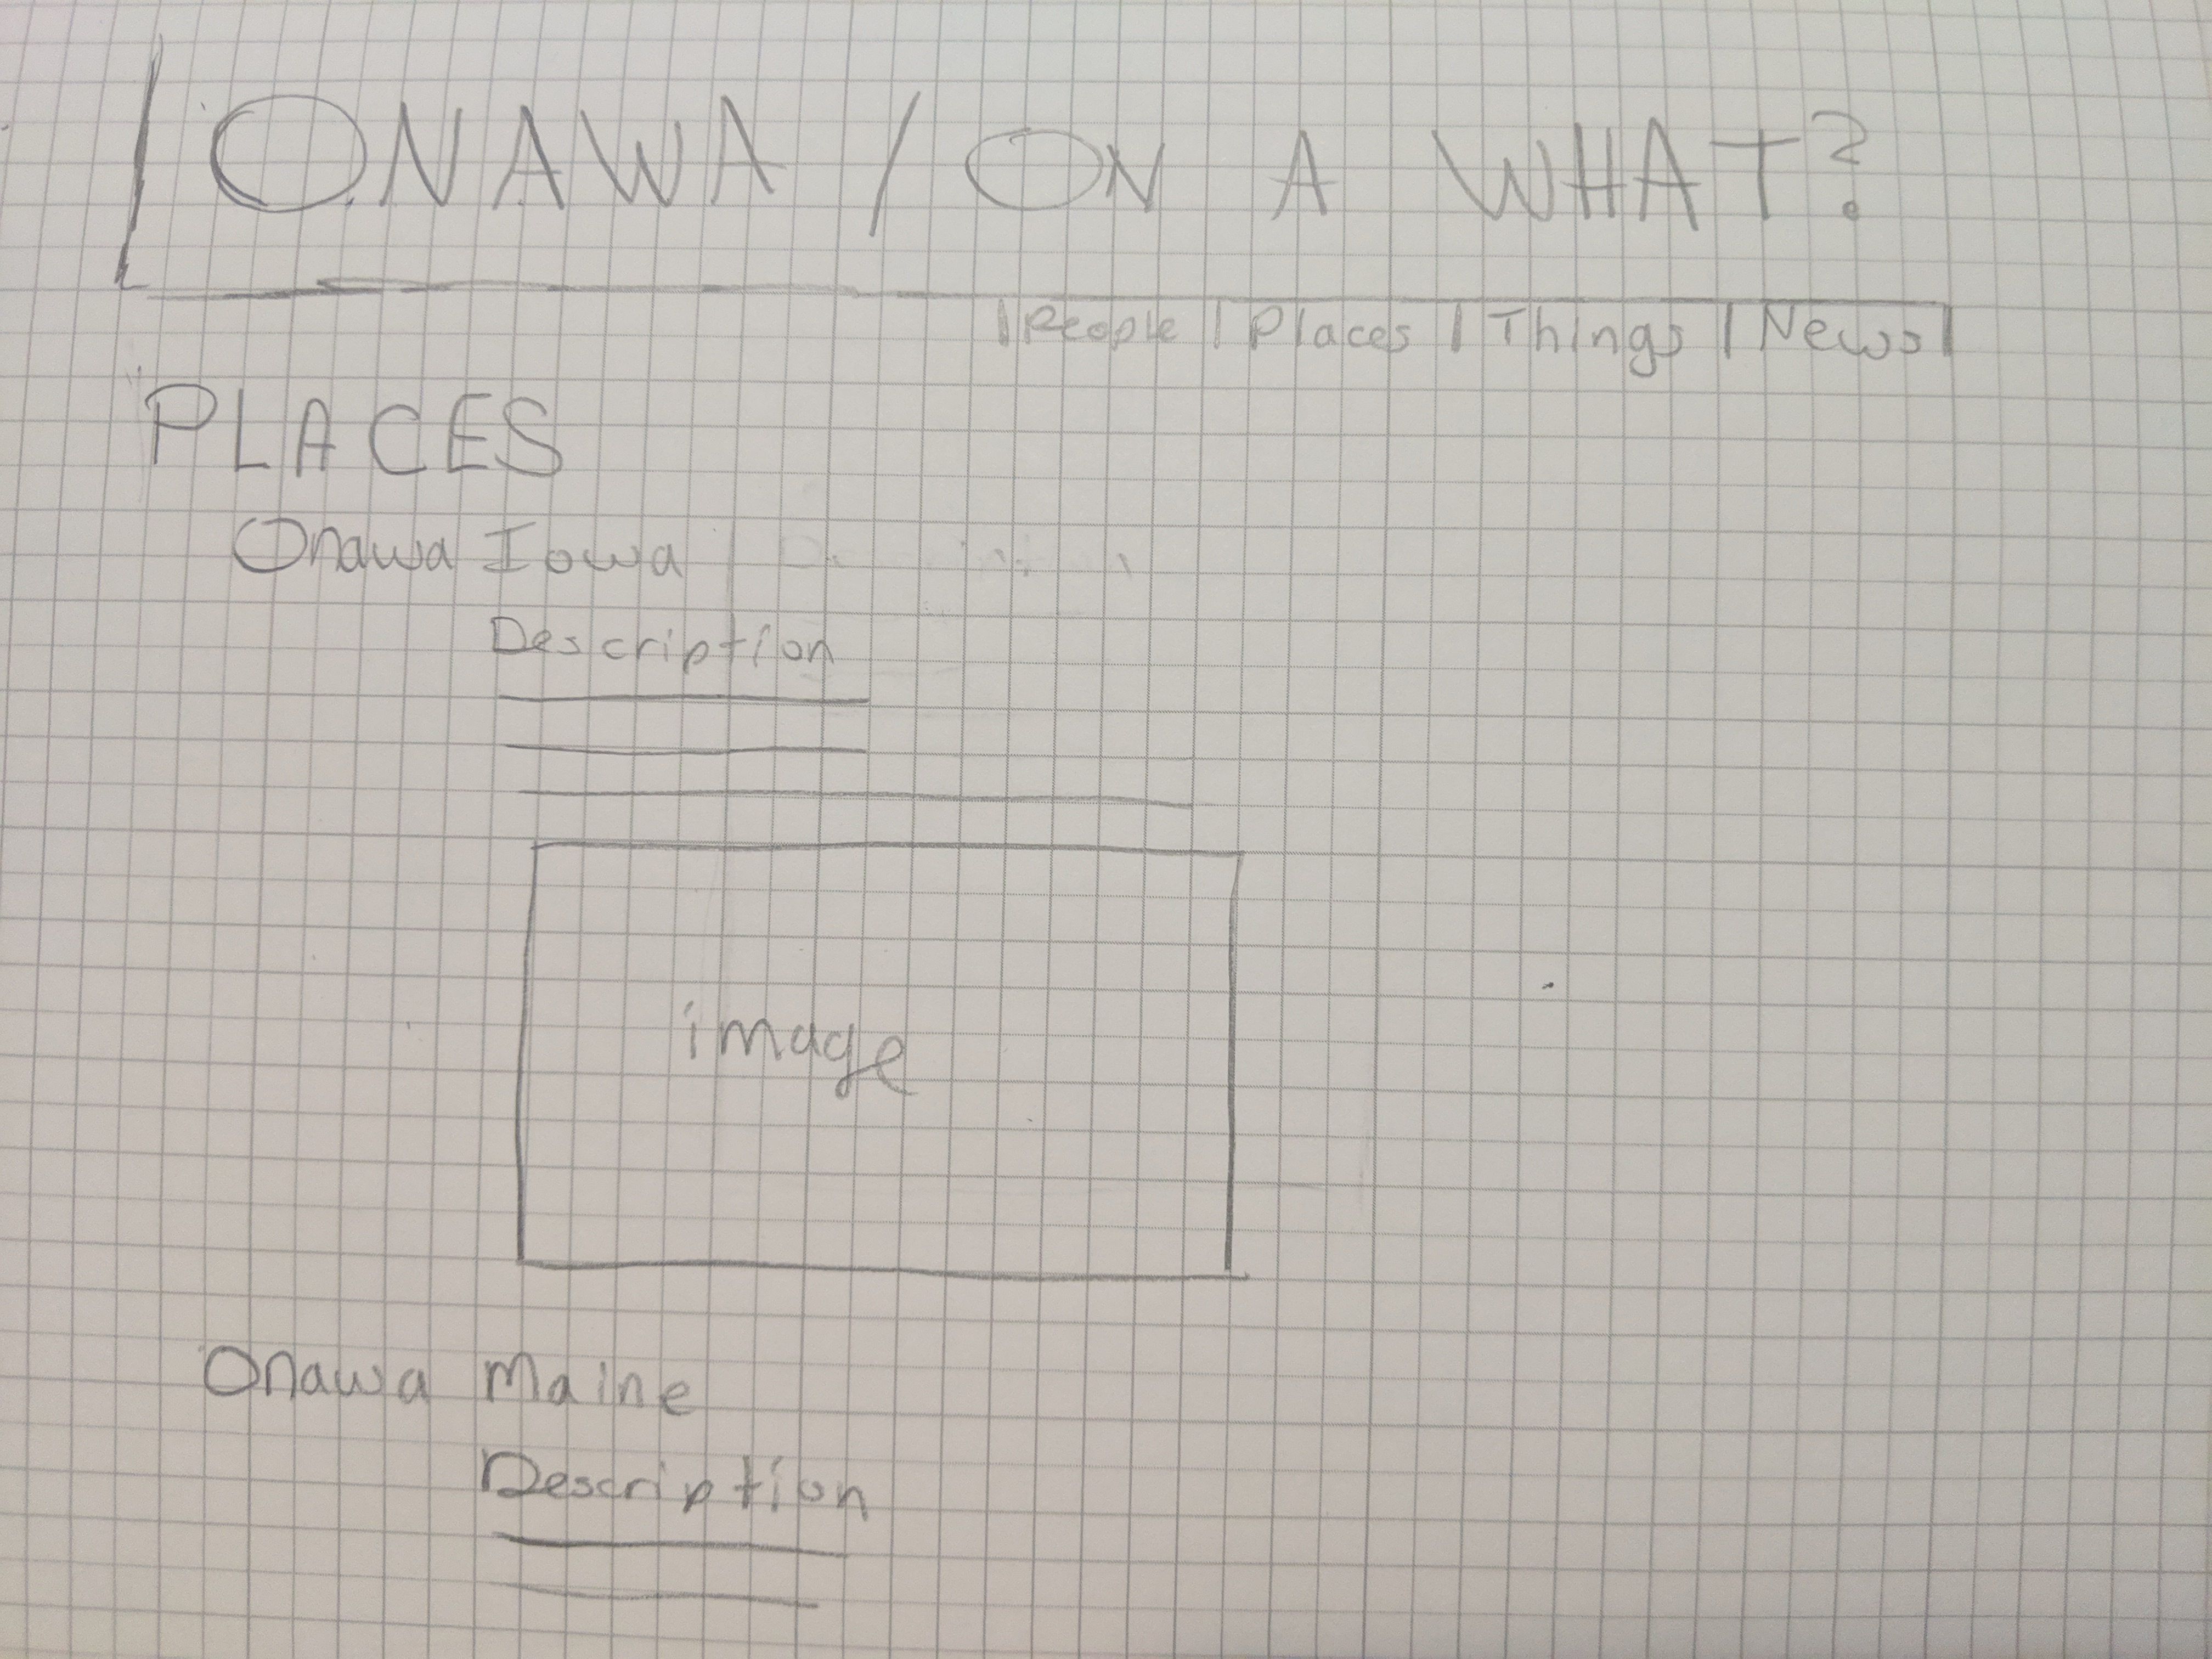 ONAWA / ON A WHAT?
| People | Places | Things | News |
PLACES
Onawa Iowa
Description
image
Onawa Maine
Description